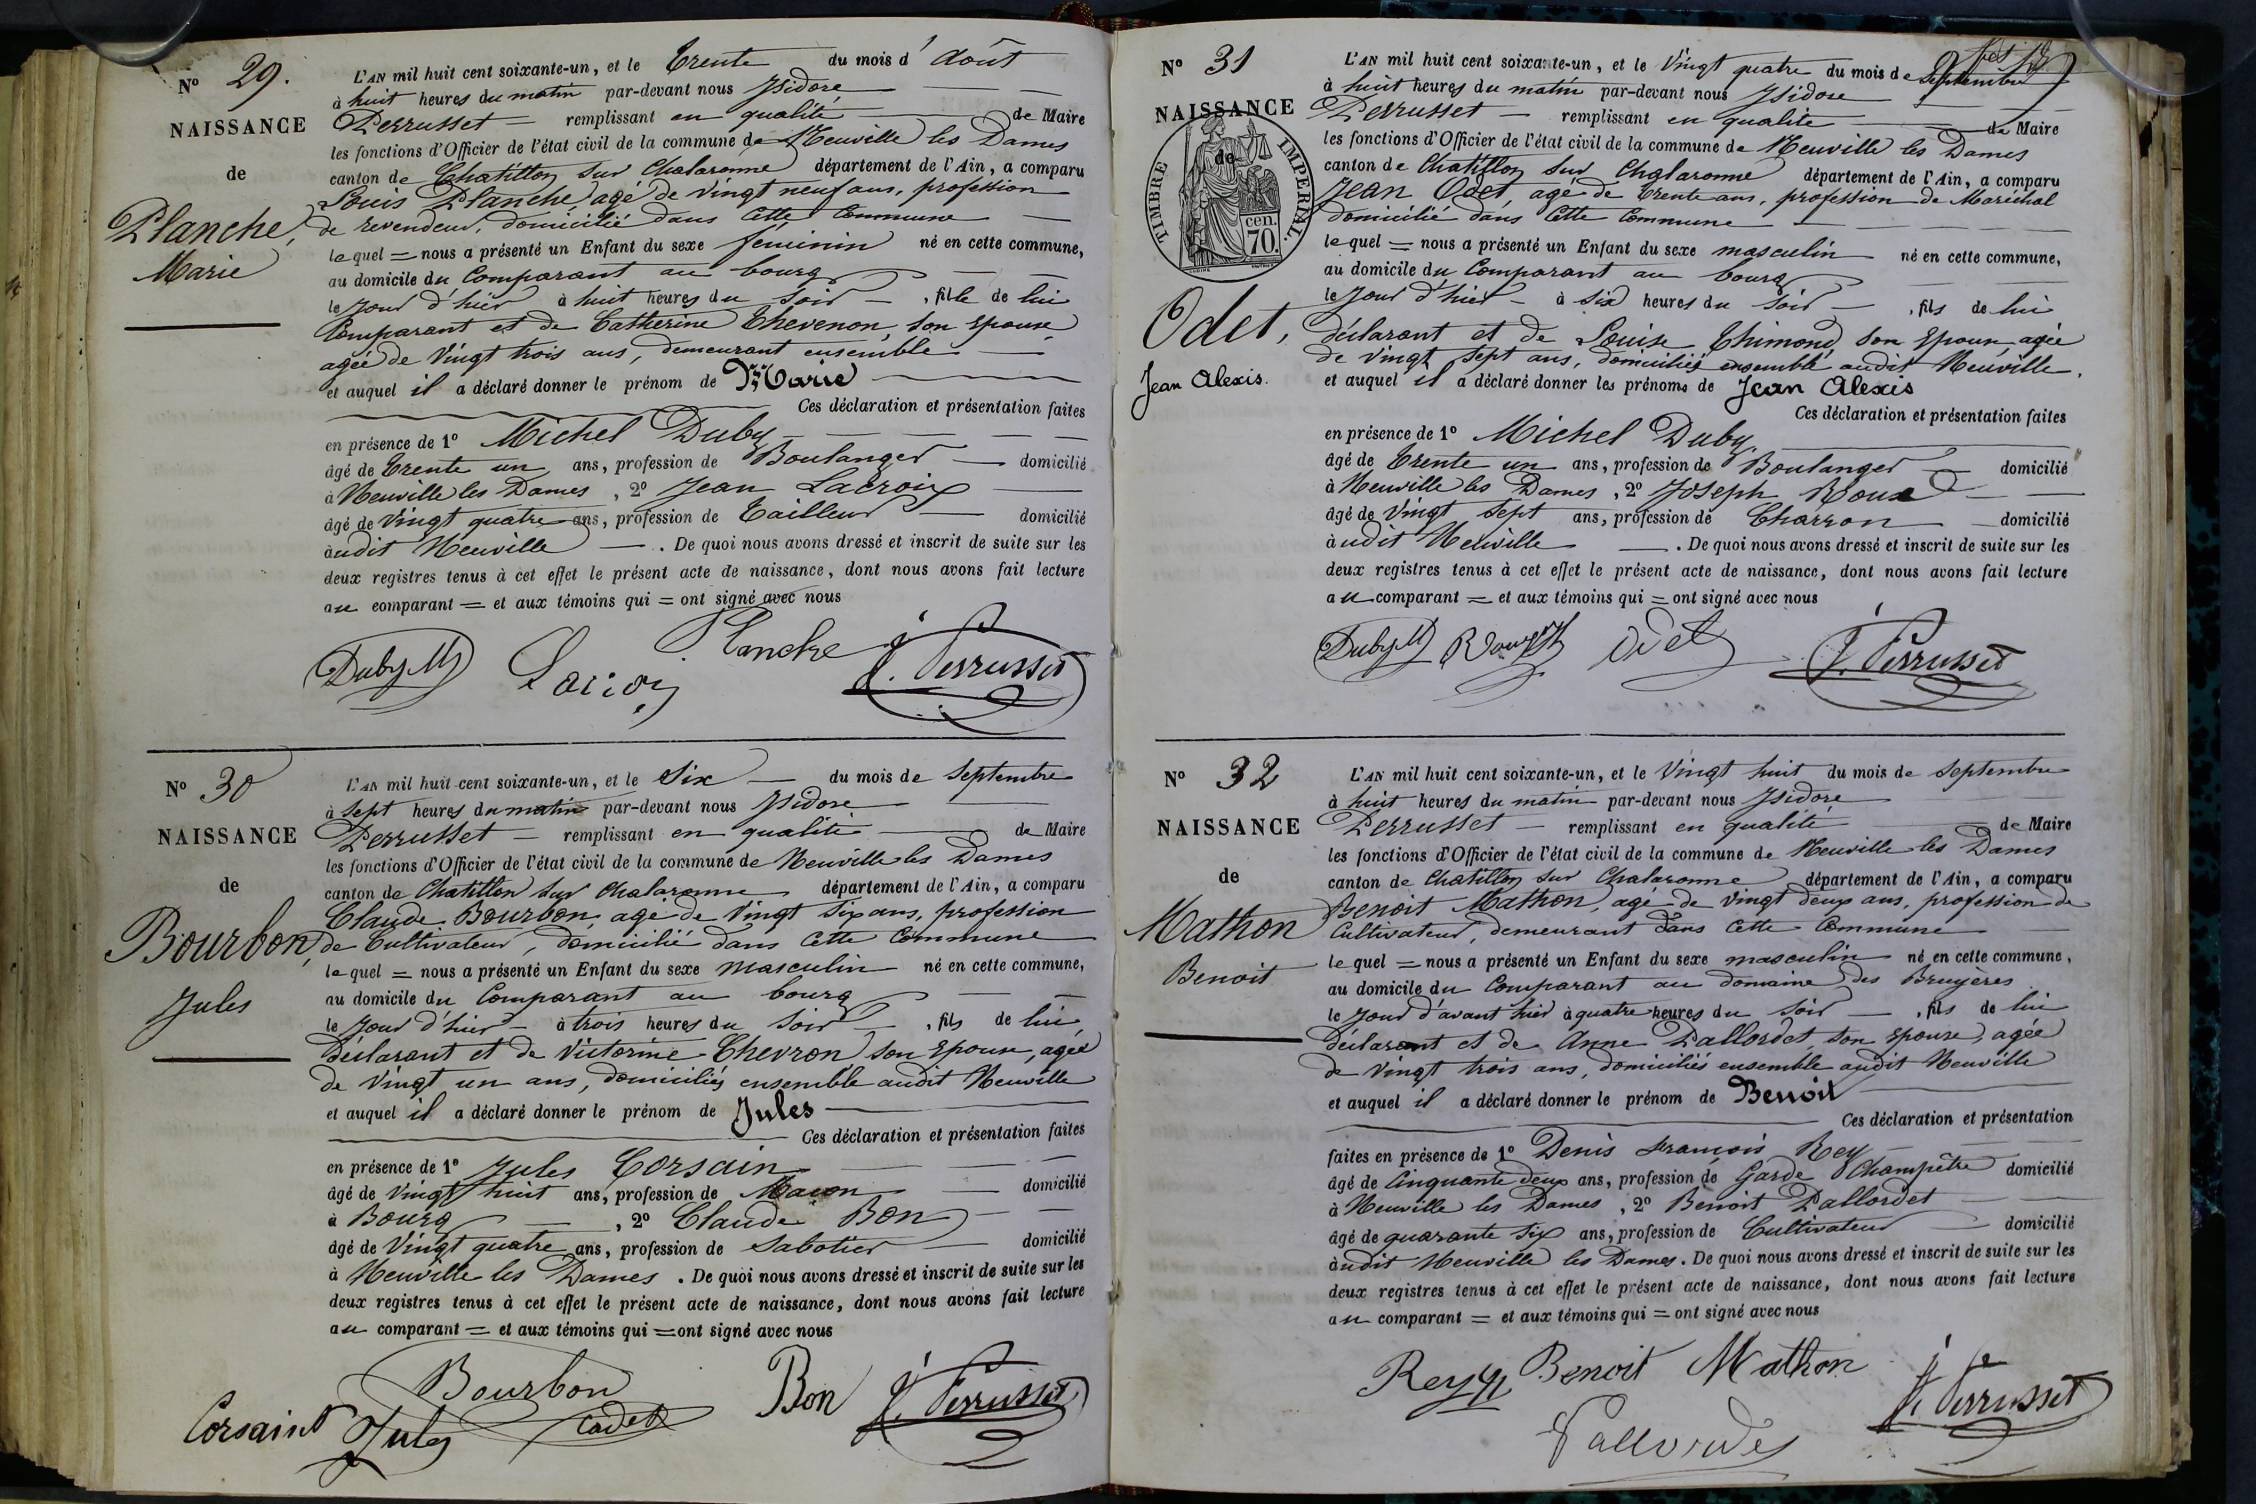 N° 29.
NAISSANCE
de
Planche,
Marie
L'AN mil huit cent soixante-un, et le Trente du mois d'Août
à huit heures du matin par-devant nous Isidore
Perrusset remplissant en qualité de Maire
les fonctions d'Officier de l'état civil de la commune de Neuville les Dames
canton de Chatillon sur Chalaronne département de l'Ain, a comparu
Louis Planche agé de vingt neuf ans, profession
de revendeur, domicilié dans cette Commune
lequel = nous a présenté un Enfant du sexe féminin né en cette commune,
au domicile du Comparant au bourg
le jour d'hier à huit heures du soir, fille de lui
Comparant et de Catherine Thevenon, son Epouse
agée de vingt trois ans, demeurant ensemble
et auquel il a déclaré donner le prénom de Marie
Ces déclaration et présentation faites
en présence de 1° Michel Duby
âgé de trente un ans, profession de Boulanger domicilié
à Neuville les Dames, 2° Jean Lacroix
âgé de vingt quatre ans, profession de Tailleur domicilié
audit Neuville. De quoi nous avons dressé et inscrit de suite sur les
deux registres tenus à cet effet le présent acte de naissance, dont nous avons fait lecture
au comparant = et aux témoins qui = ont signé avec nous
Duby M Planche I. Perrusset
N° 30
NAISSANCE
de
Bourbon,
Jules
L'AN mil huit cent soixante-un, et le Six du mois de Septembre
à sept heures du matin par-devant nous Isidore
Perrusset remplissant en qualité de Maire
les fonctions d'Officier de l'état civil de la commune de Neuville les Dames
canton de Chatillon sur Chalaronne département de l'Ain, a comparu
Claude Bourbon, agé de vingt six ans, profession
de Cultivateur, domicilié dans cette Commune
lequel = nous a présenté un Enfant du sexe masculin né en cette commune,
au domicile du Comparant au bourg
le jour d'hier à trois heures du soir, fils de lui
déclarant et de Victorine Chevron, son Epouse, agée
de vingt un ans, domiciliés ensemble audit Neuville
et auquel il a déclaré donner le prénom de Jules
Ces déclaration et présentation faites
en présence de 1° Jules Corsain
âgé de vingt huit ans, profession de Maçon domicilié
à Bourg, 2° Claude Bon
âgé de vingt quatre ans, profession de Sabotier domicilié
à Neuville les Dames. De quoi nous avons dressé et inscrit de suite sur les
deux registres tenus à cet effet le présent acte de naissance, dont nous avons fait lecture
au comparant = et aux témoins qui = ont signé avec nous
Bourbon cadet Bon I. Perrusset
Corsaint Jules
N° 31
NAISSANCE
de
TIMBRE IMPERIAL
70. cen.
Odet,
Jean Alexis.
L'AN mil huit cent soixante-un, et le vingt quatre du mois de Septembre
à huit heures du matin par-devant nous Isidore
Perrusset remplissant en qualité de Maire
les fonctions d'Officier de l'état civil de la commune de Neuville les Dames
canton de Chatillon sur Chalaronne département de l'Ain, a comparu
Jean Odet, agé de trente ans, profession de Maréchal
domicilié dans cette Commune
lequel = nous a présenté un Enfant du sexe masculin né en cette commune,
au domicile du Comparant au bourg
le jour d'hier à six heures du soir, fils de lui
déclarant et de Louise Thimond, son Epouse, agée
de vingt sept ans, domiciliés ensemble audit Neuville.
et auquel il a déclaré donner les prénoms de Jean Alexis
Ces déclaration et présentation faites
en présence de 1° Michel Duby
âgé de trente un ans, profession de Boulanger domicilié
à Neuville les Dames, 2° Joseph Roux
âgé de vingt sept ans, profession de Charron domicilié
audit Neuville. De quoi nous avons dressé et inscrit de suite sur les
deux registres tenus à cet effet le présent acte de naissance, dont nous avons fait lecture
au comparant = et aux témoins qui = ont signé avec nous
Duby M Odet I. Perrusset
N° 32
NAISSANCE
de
Mathon
Benoit
L'AN mil huit cent soixante-un, et le vingt huit du mois de Septembre
à huit heures du matin par-devant nous Isidore
Perrusset remplissant en qualité de Maire
les fonctions d'Officier de l'état civil de la commune de Neuville les Dames
canton de Chatillon sur Chalaronne département de l'Ain, a comparu
Benoit Mathon, agé de vingt deux ans, profession de
Cultivateur, demeurant dans cette Commune
lequel = nous a présenté un Enfant du sexe masculin né en cette commune,
au domicile du Comparant au domaine des Bruyères
le jour d'avant hier à quatre heures du soir, fils de lui
déclarant et de Anne Pallordet, son Epouse, agée
de vingt trois ans, domiciliés ensemble audit Neuville
et auquel il a déclaré donner le prénom de Benoit
Ces déclaration et présentation
faites en présence de 1° Denis François Rey
âgé de Cinquante deux ans, profession de Garde Champêtre domicilié
à Neuville les Dames, 2° Benoit Pallordet
âgé de quarante six ans, profession de Cultivateur domicilié
audit Neuville les Dames. De quoi nous avons dressé et inscrit de suite sur les
deux registres tenus à cet effet le présent acte de naissance, dont nous avons fait lecture
au comparant = et aux témoins qui = ont signé avec nous
Rey Benoit Mathon I. Perrusset